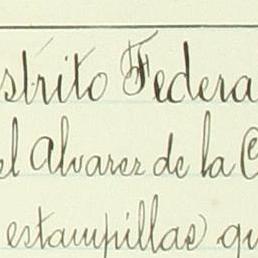 strito Federa
el Alvarez de la C
estampillas) qu